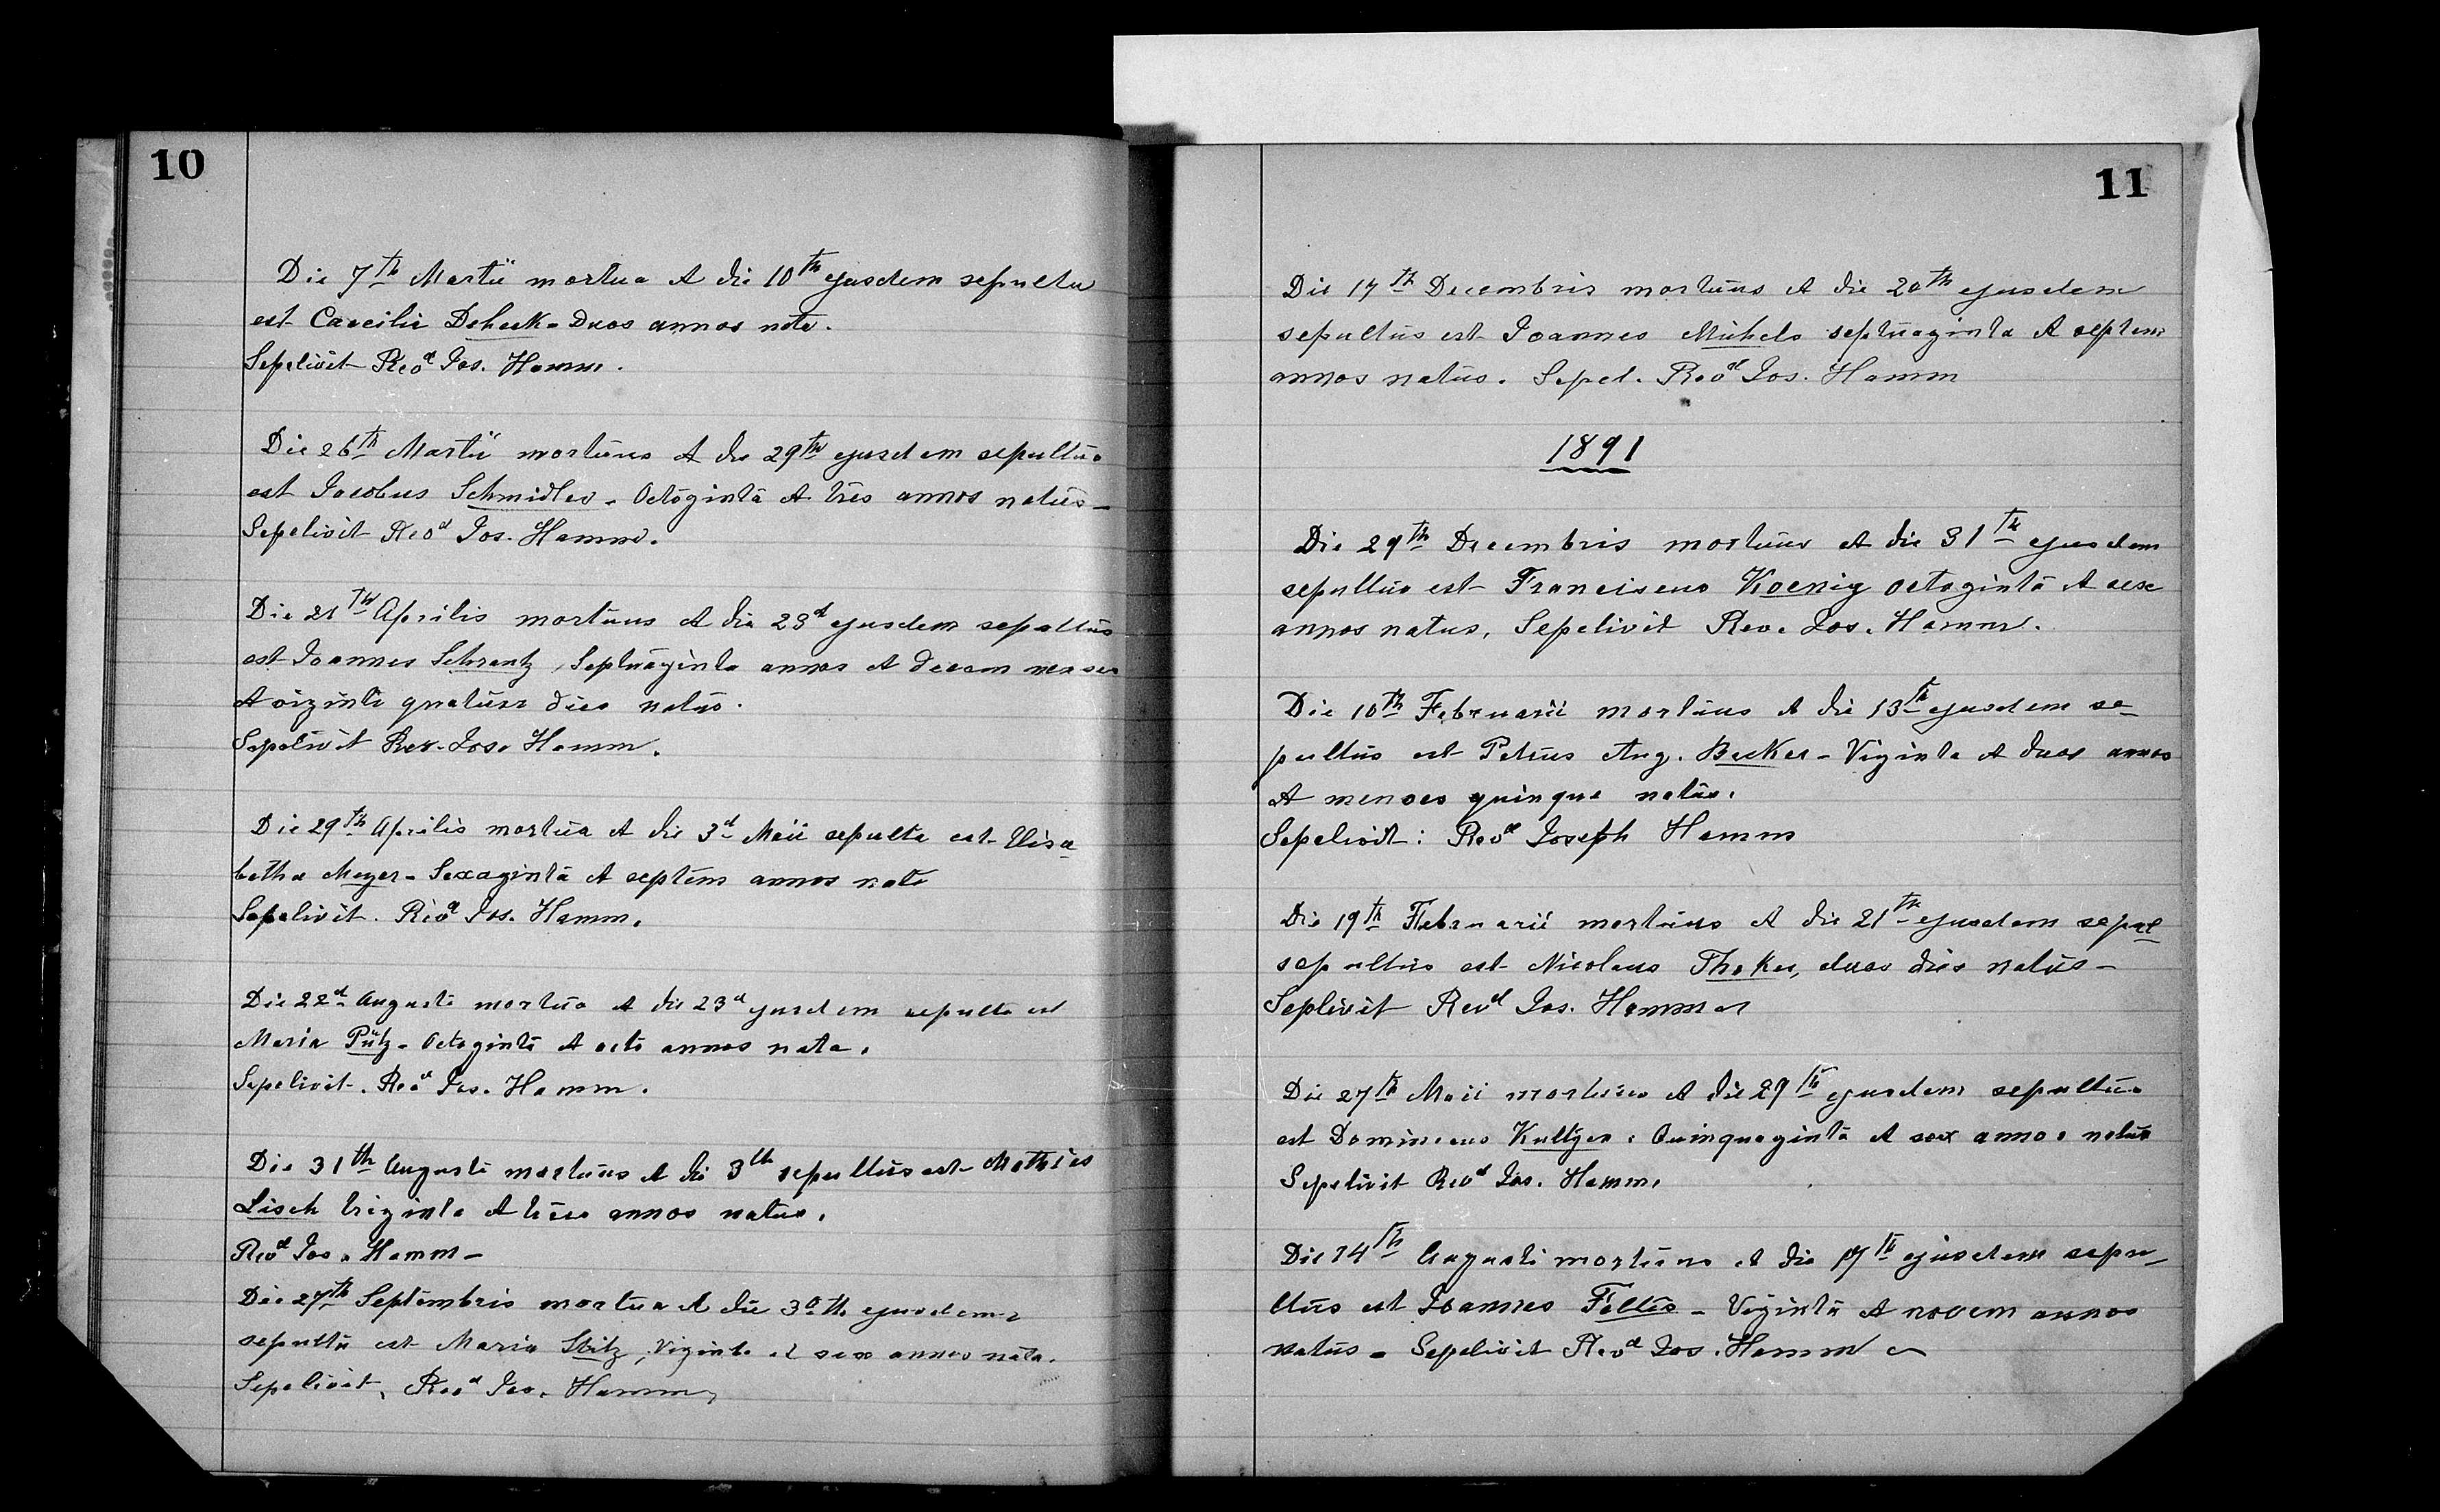 10
Die 7th Martii mortua et die 10th ejusdem sepulta
est Caecilia Deheck - Duos annos nata.
Sepelivit Revd Jos. Hamm.
Die 26th Martii mortuus et die 29th ejusdem sepultus
est Jacobus Schmidler - Octoginta et tres annos natus -
Sepelivit Revd Jos. Hamm.
Die 21th Aprilis mortuus et die 23d ejusdem sepultus
est Joannes Schrantz, Septuaginta annos et decem menses
et viginti quatuor dies natus.
Sepelivit Rev. Jos. Hamm.
Die 29th Aprilis mortua et die 3d Maii sepulta est Elisa
betha Meyer - Sexaginta et septem annos nata
Sepelivit. Revd Jos. Hamm.
Die 22d Augusti mortua et die 23d ejusdem sepulta est
Maria Pütz - Octoginta et octo annos nata.
Sepelivit. Revd Jos. Hamm.
Die 31th Augusti mortuus et die 3th sepultus est Mathias
Lisch triginta et tres annos natus.
Revd Jos. Hamm -
Die 27th Septembris mortua et die 30th ejusdem
sepulta est Maria Stitz, Viginti et sex annos nata.
Sepelivit, Revd Jos. Hamm
11
Die 17th Decembris mortuus et die 20th ejusdem
sepultus est Joannes Michels septuaginta et septem
annos natus. Sepel. Revd Jos. Hamm
1891
Die 29th Decembris mortuus et die 31th ejusdem
sepultus est Franciscus Koenig octoginta et sex
annos natus, Sepelivit Rev. Jos. Hamm.
Die 10th Februarii mortuus et die 13th ejusdem se-
pultus est Petrus Aug. Becker - Viginta et duos annos
et menses quinque natus.
Sepelivit: Revd Joseph Hamm
Die 19th Februarii mortuus et die 21th ejusdem sepul
sepultus est Nicolaus Theker, duos dies natus -
Seplivit Revd Jos. Hamm
Die 27th Maii mortuus et die 29th ejusdem sepultus
est Dominicus Kultgen. Quinquaginta et sex annos natus
Sepelivit Revd Jos. Hamm.
Die 14th Augusti mortuus et die 17th ejusdem sepu-
ltus est Joannes Feltes - Viginta et novem annos
natus - Sepelivit Revd Jos. Hamm